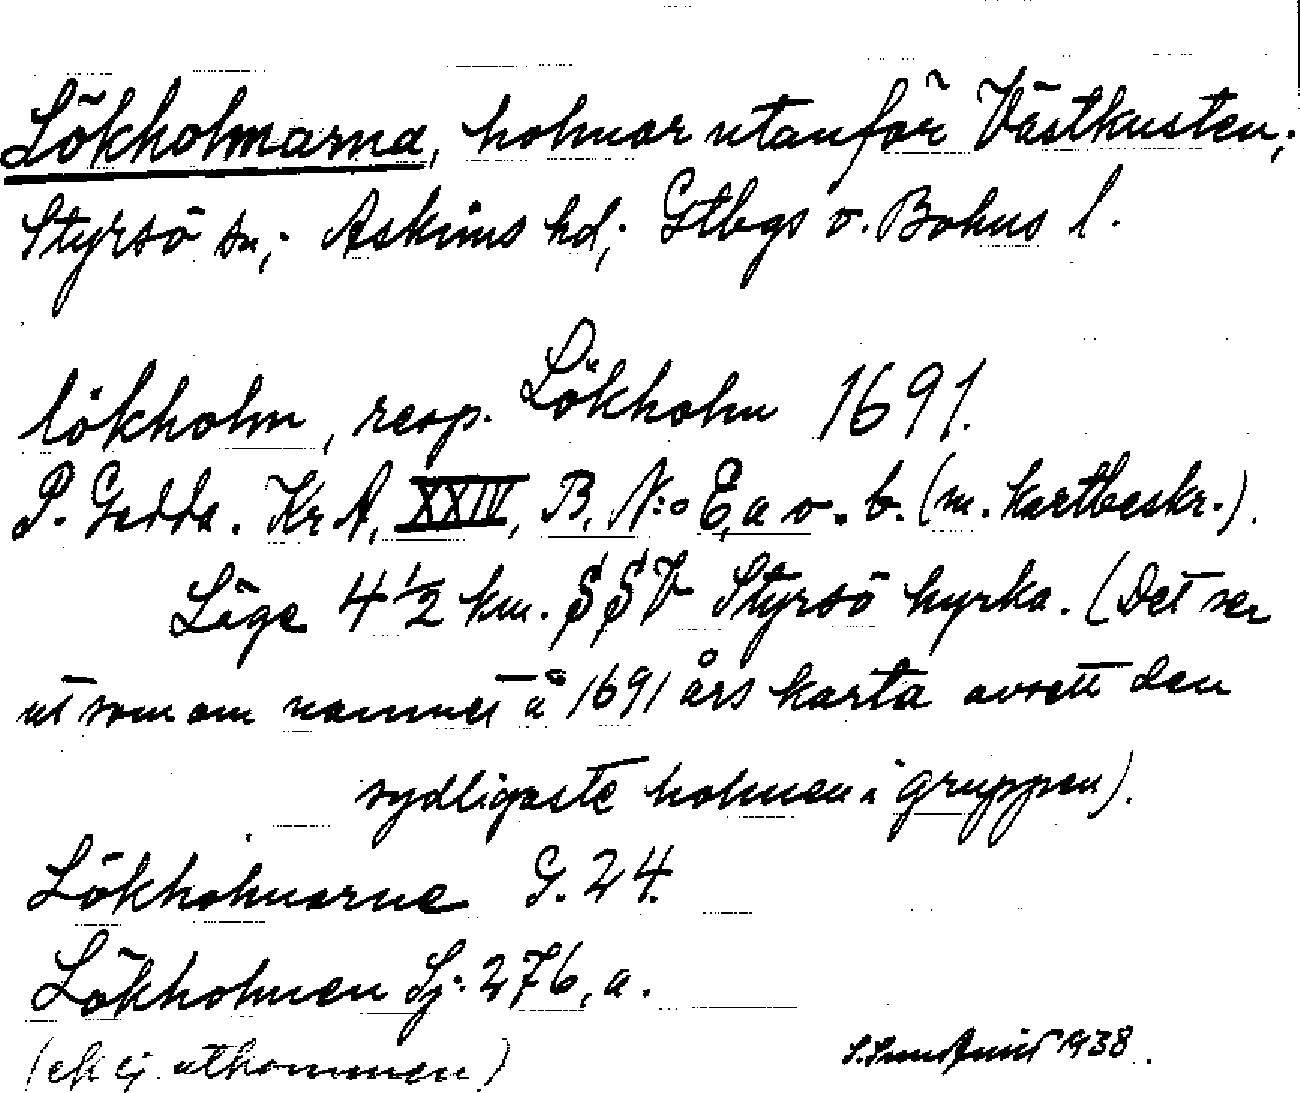 Lökholmarna, holmar utanför Västkusten;
Styrsö sn; Askims hd; Gtbgs o. Bohus l.
lökholm, resp. Lökholm 1691.
P. Gedda. Kr A, XXIV, B, N:o E, a o. b. (m. kartbeskr.).
Läge 4 1/2 km. SSV Styrsö kyrka. (Det ser
ut som om namnet å 1691 års karta avsett den
sydligaste holmen i gruppen).
Lökholmarne G. 24.
Lökholmen Sj. 276, a.
(ek ej utkommen)
1938.